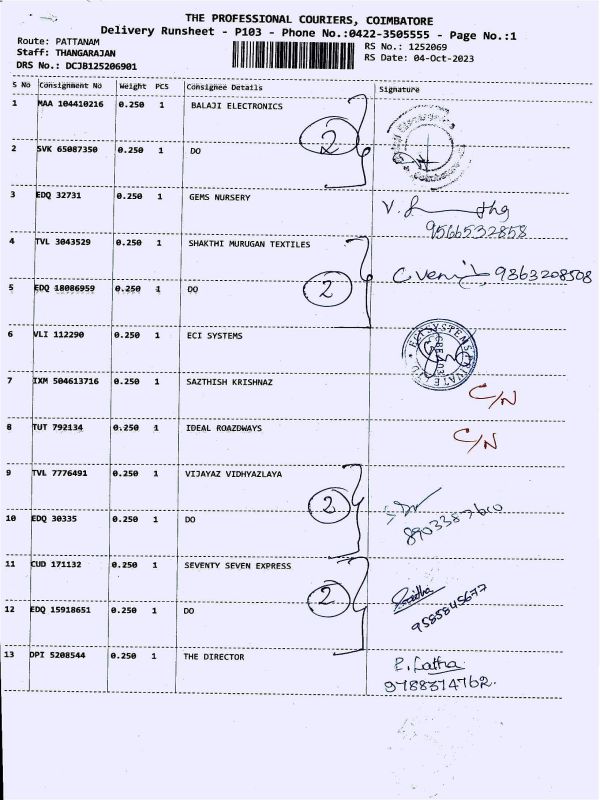 THE PROFESSIONAL COURIERS, COIMBATORE
Delivery Runsheet - P103 - Phone No.:0422-3505555 - Page No.:1
Route: PATTANAM
RS No.: 1252069
Staff: THANGARAJAN
RS Date: 04-Oct-2023
DRS No.: DCJB125206901
S No Consignment No Weight PCS Consignee Details Signature
1 MAA 104410216 0.250 1 BALAJI ELECTRONICS
2
2 SVK 65087350 0.250 1 DO
3 EDQ 32731 0.250 1 GEMS NURSERY
9566532858
4 TVL 3043529 0.250 1 SHAKTHI MURUGAN TEXTILES
9363208508
2
5 EDQ 18086959 0.250 1 DO
6 VLI 112290 0.250 1 ECI SYSTEMS
ECI SYSTEMS PRIVATE LTD
7 IXM 504613716 0.250 1 SAZTHISH KRISHNAZ
C/N
8 TUT 792134 0.250 1 IDEAL ROAZDWAYS
C/N
9 TVL 7776491 0.250 1 VIJAYAZ VIDHYAZLAYA
2
10 EDQ 30335 0.250 1 DO
11 CUD 171132 0.250 1 SEVENTY SEVEN EXPRESS
2
12 EDQ 15918651 0.250 1 DO
9585845677
13 DPI 5208544 0.250 1 THE DIRECTOR
P. Latha
9788374762.